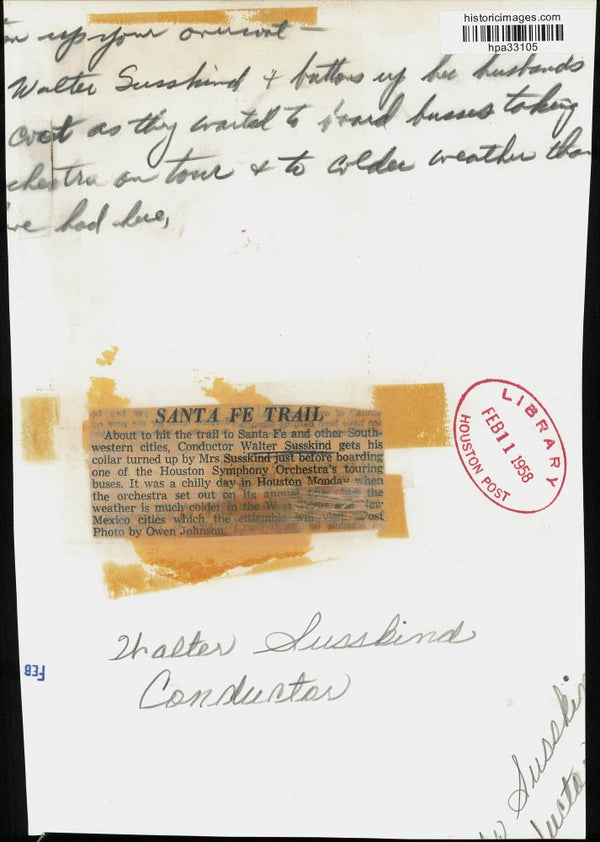 historicimages.com
hpa33105
up your overcoat -
Walter Susskind & buttons up her husbands
coat as they waited to board busses taking
chestra on tour & to colder weather than
've had here,
SANTA FE TRAIL
About to hit the trail to Santa Fe and other South-
western cities, Conductor Walter Susskind gets his
collar turned up by Mrs. Susskind just before boarding
one of the Houston Symphony Orchestra's touring
buses. It was a chilly day in Houston Monday when
the orchestra set out on its annual the
weather is much colder in the West New
Mexico cities which the ensemble will visit. Post
Photo by Owen Johnson.
LIBRARY
FEB 11 1958
HOUSTON POST
Walter Susskind
Conductor
FEB
Susskin